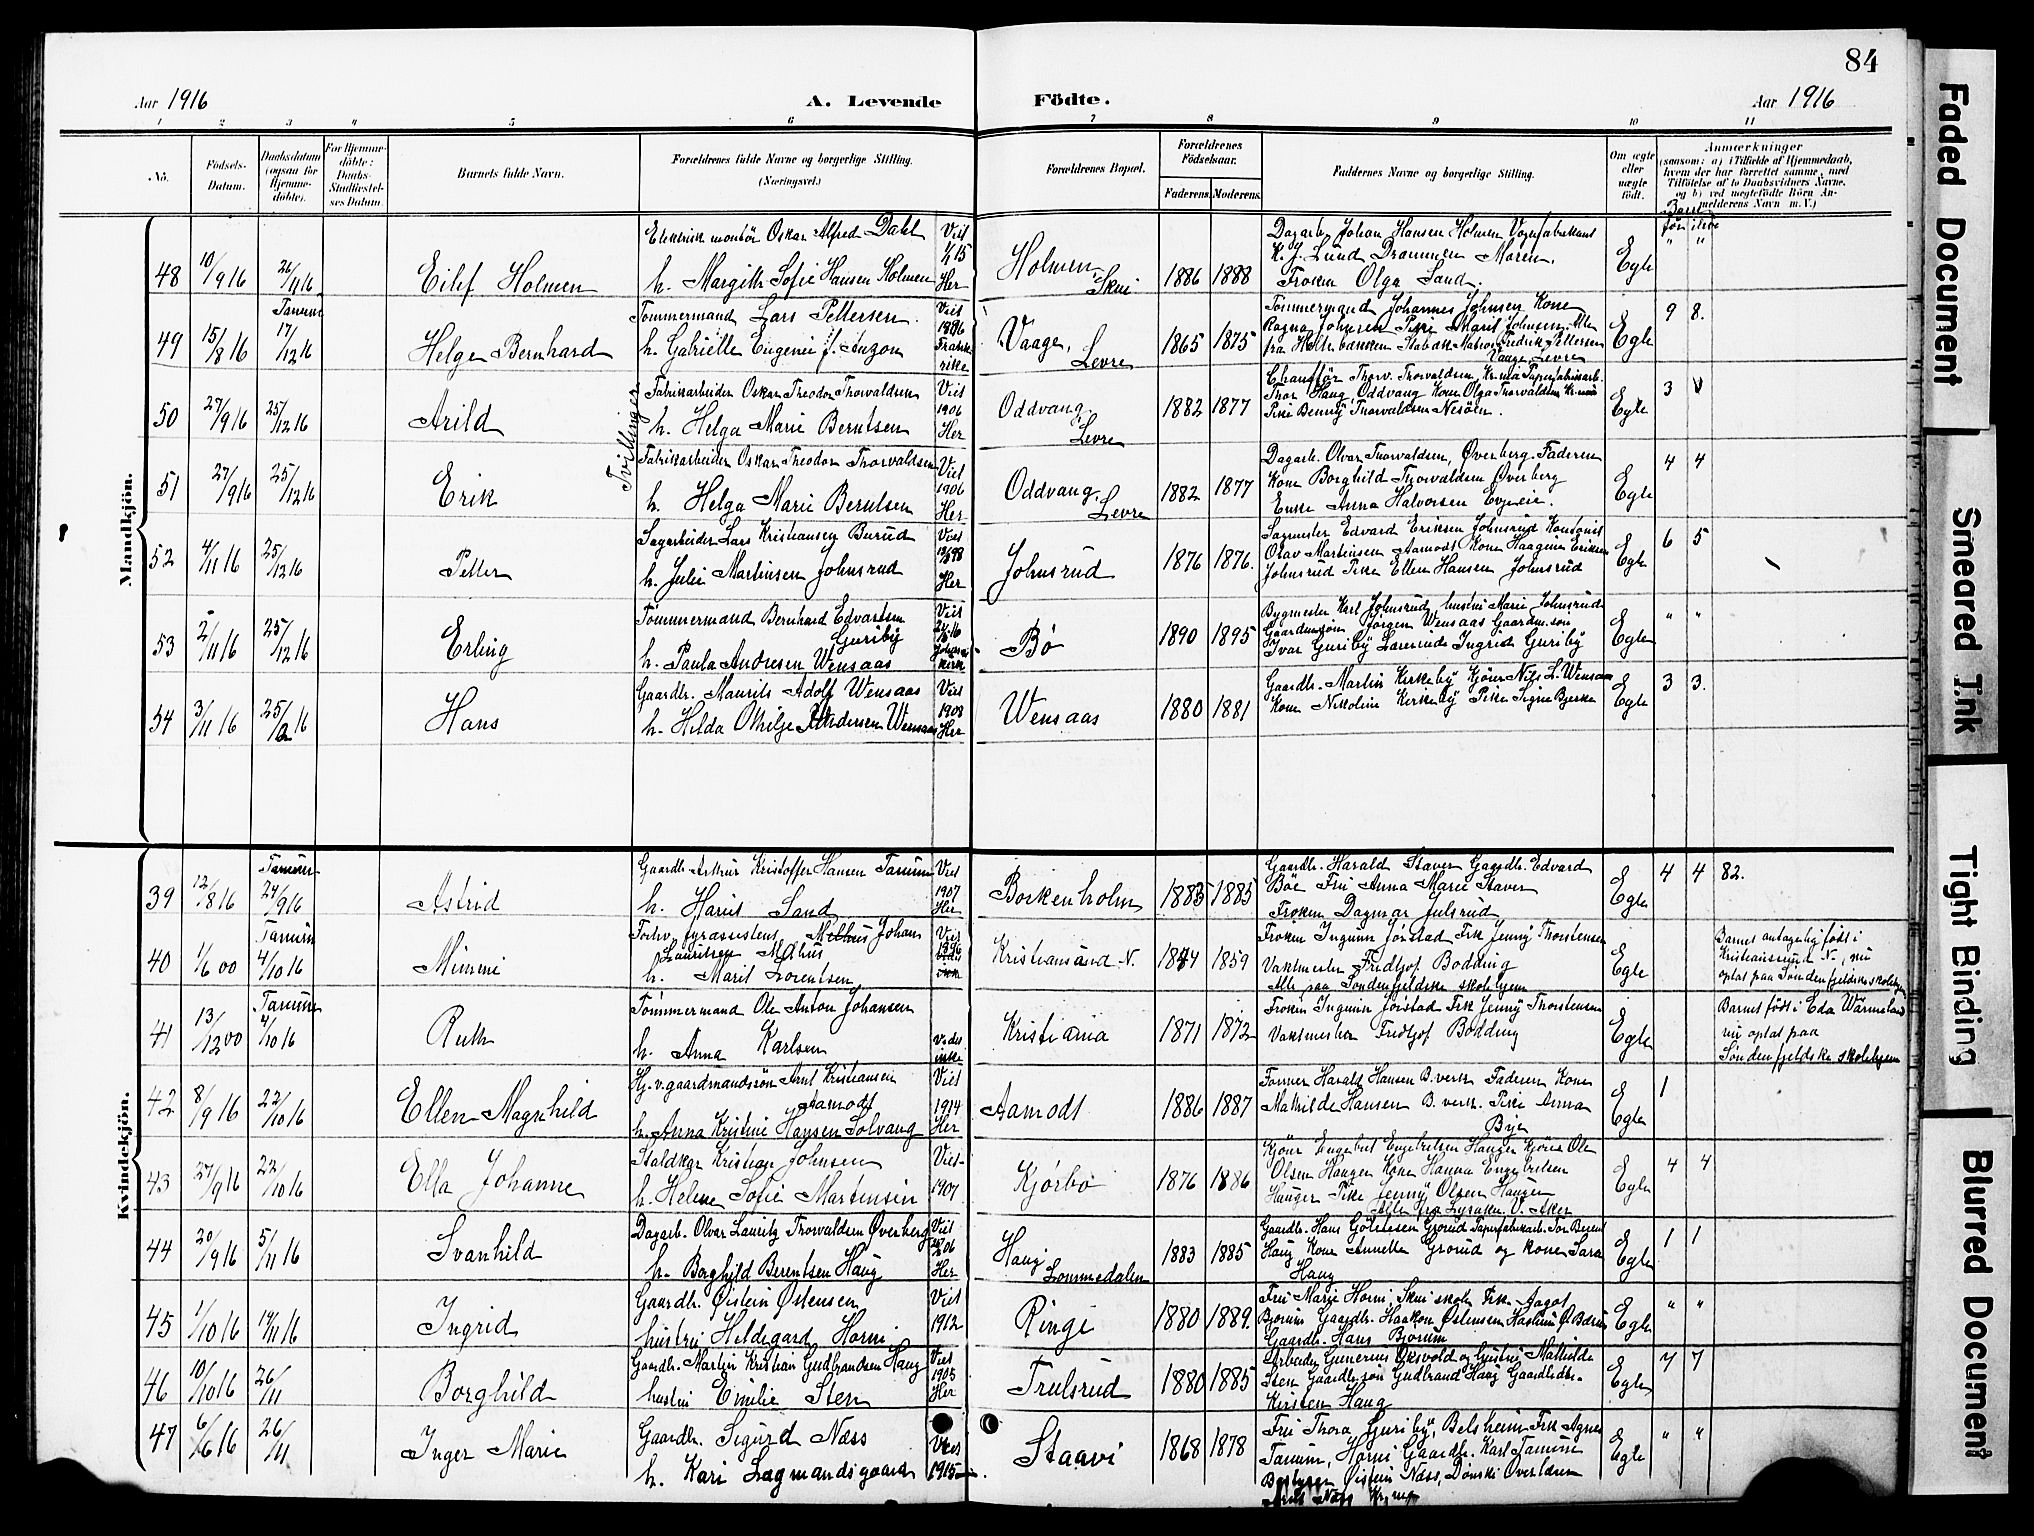 84
Aar 1916
A. Levende Födte.
Aar 1916
1 2 3 4 5 6 7 8 9 10 11
No.
Födsels-Datum.
Daabsdatum (ogsaa for Hjemme-döbte).
For Hjemme-döbte: Daabs-Stadfæstel-ses Datum.
Barnets fulde Navn.
Forældrenes fulde Navne og borgerlige Stilling. (Næringsvei.)
Forældrenes Bopæl.
Forældrenes Födselsaar.
Faderens. Moderens.
Faddernes Navne og borgerlige Stilling.
Om ægte eller uægte födt.
Anmærkninger
(saasom: a) i Tilfælde af Hjemmedaab, hvem der har forrettet samme, med Tilföielse af to Daabsvidners Navne, og b) ved uægtefödte Börn An-melderens Navn m. V.)
Mandkjön.
48 10/9 16 26/11 16 Eilif Holmen
Elektrisk montör Oskar Alfred Dahl
h. Margith Sofie Hansen Holmen
Viet 15 Her
Holmen Skui 1886 1888
Dagarb. Johan Hansen Holmen Vognfabrikant
K. J. Lund Drammen Maren,
Frøken Olga Sand.
Egte " "
49 15/8 16 Tanum 17/12 16 Helge Bernhard
Tømmermand Lars Pettersen.
h. Gabrielle Eugenie f. Auzon
Viet 1896 Frankrike
Vaage, Levre 1865 1875
Tømmermand Johannes Johnsen Kone
Ragna Johnsen Pike Marit Johnsen Alle
fra Holtebakken Stabæk Matros Fredrik Pettersen
Vaage Levre
Egte 9 8.
50 27/9 16 25/12 16 Arild
Tvillinger
Fabrikarbeider Oskar Theodor Thorvaldsen
h. Helga Marie Berntsen
Viet 1906 Her
Oddvang Levre 1882 1877
Chauffør Thorv. Thorvaldsen, Kr.nia Papirfabrikarb.
Thor Haug, Oddvang Kone Olga Thorvaldsen Kr.nia
Pike Benny Thorvaldsen Nesöen.
Egte 3
51 27/9 16 25/12 16 Erik
Fabrikarbeider Oskar Theodor Thorvaldsen
h. Helga Marie Berntsen
Viet 1906 Her
Oddvang, Levre 1882 1877
Dagarb. Olvar Thorvaldsen, Øverberg. Faderen
Kone Borghild Thorvaldsen Øverberg
Enke Anna Halvorsen
Egte 4 4
52 4/11 16 25/12 16 Petter
Sagarbeider Lars Kristiansen Burud
h. Julie Martinsen Johnsrud
Viet 98 Her
Johnsrud 1876 1876.
Sagmester Edvard Eriksen Johnsrud Kontorist
Olav Martinsen Aamodt Kone Haagine Eriksen
Johnsrud Pike Ellen Hansen Johnsrud
Egte 6 5
53 2/11 16 25/12 16 Erling
Tømmermand Bernhard Edvartsen
Guriby
h. Paula Andresen Wensaas
Viet 16 kirke
Bö 1890 1895
Bygmester Karl Johnsrud, hustru Marie Johnsrud
Gaardmsøn Jørgen Wensaas Gaardm.søn
Ivar Guriby Lærerinde Ingrid Guriby
Egte " "
54 3/11 16 25/12 16 Hans
Gaardbr. Maurits Adolf Wensaas
h. Hilda Othilje Andersen Wensaas
Viet 1908 Her
Wensaas 1880 1881
Gaardbr. Martin Kirkeby Kjører Nils L. Wensaas
Kone Nikoline Kirkeby Pike Signe Bjerke
Egte 3 3.
Kvindekjön.
39 12/8 16 Tanum 24/9 16 Astrid
Gaardbr. Arthur Kristoffer Hansen Tanum
h. Harriet Sand
Viet 1907 Her
Borkenholm 1883 1885
Gaardbr. Harald Staver Gaardbr. Edvard
Böe Fru Anna Marie Staver
Frøken Dagmar Julsrud
Egte 4 4 82.
40 1/6 00 Tanum 4/10 16 Mimmi
Forhv. fyrassistent Melhus Johan
Lauritsen Melhus
h. Marit Lorentsen
Viet 1896
Kristiansund N. 1859
Frøken Ingunn Jørstad Frk Jenny Thorstensen
Vaktmester Fridtjof Bodding
Alle paa Søndenfjeldske skolehjem
Egte
Barnet antagelig født i
Kristianssund N., nu
optat paa Søndenfjeldske skolehjem
41 13/12 00 Tanum 4/10 16 Ruth
Tømmermand Ole Anton Johansen
h. Anna Karlsen
Vides ikke
Kristiania 1871 1872
Frøken Ingunn Jørstad Frk Jenny Thorstensen
Vaktmester Fridtjof Bodding
Egte
Barnet født i Eda Wärmeland
nu optat paa
Søndenfjeldske skolehjem
42 8/9 16 22/10 16 Ellen Magnhild
Hj.v. gaardmandssøn Arnt Kristiansen
Aamodt
h. Anna Kristine Hansen Solvang
Viet 1914 Her
Aamodt 1886 1887
Former Harald Hansen B.verk Faderen Kone
Mathilde Hansen B. verk. Pike Anna
Bye
Egte 1
43 27/9 16 22/10 16 Ella Johanne
Staldkar Kristian Johnsen
h. Helene Sofie Martinsen
Viet 1907
Kjørbo 1876 1886
Kjører Engebret Engebretsen Hauger Kjører Ole
Olsen Hauger Kone Hanna Engebretsen
Hauger Pike Jenny Olsen Hauger
Alle fra Lysaker V. Aker
Egte 4 4
44 20/9 16 5/11 16 Svanhild
Dagarb. Olvar Lauritz Thorvaldsen Øverberg
h. Borghild Berentsen Haug
Viet 06 Her
Haug Lommedalen 1883 1885
Gaardbr. Hans Grorud Papirfabrikarb. Tor Berent
Haug Kone Annette Grorud og kone Sara
Haug
Egte 1 1
45 1/10 16 19/11 16 Ingrid
Gaardbr. Øistein Østensen
hustru Hildegard Horni
Viet 1912
Ringi 1880 1889.
Fru Marie Horni Skui skole Frk. Aagot
Bjørum Gaardbr. Haakon Østensen Haslum Ø. Bærum
Gaardbr. Hans Bjorum
Egte " "
46 10/10 16 26/11 Borghild
Gaardbr. Martin Kristian Gudbrandsen Haug
hustru Emilie Sten
Viet 1905 Her
Trulsrud 1880 1885
Arbeider Gunerius Oksvold og hustru Mathilde
Sten Gaardbr.søn Gudbrand Haug Gaardbr.dtr.
Kirsten Haug
Egte 7 7
47 6/6 16 26/11 Inger Marie
Gaardbr. Sigurd Næss
h. Kari Lagmandsgaard
Viet 1915
Staavi 1868 1878
Fru Thora Guriby, Belsheim Frk Agnes
Tanum, Horni Gaardbr. Karl Tanum
Bestyrer Øistein Næss, Dønski Overlærer
Næss
Egte " "
Faded Document
Smeared Ink
Tight Binding
Blurred Document